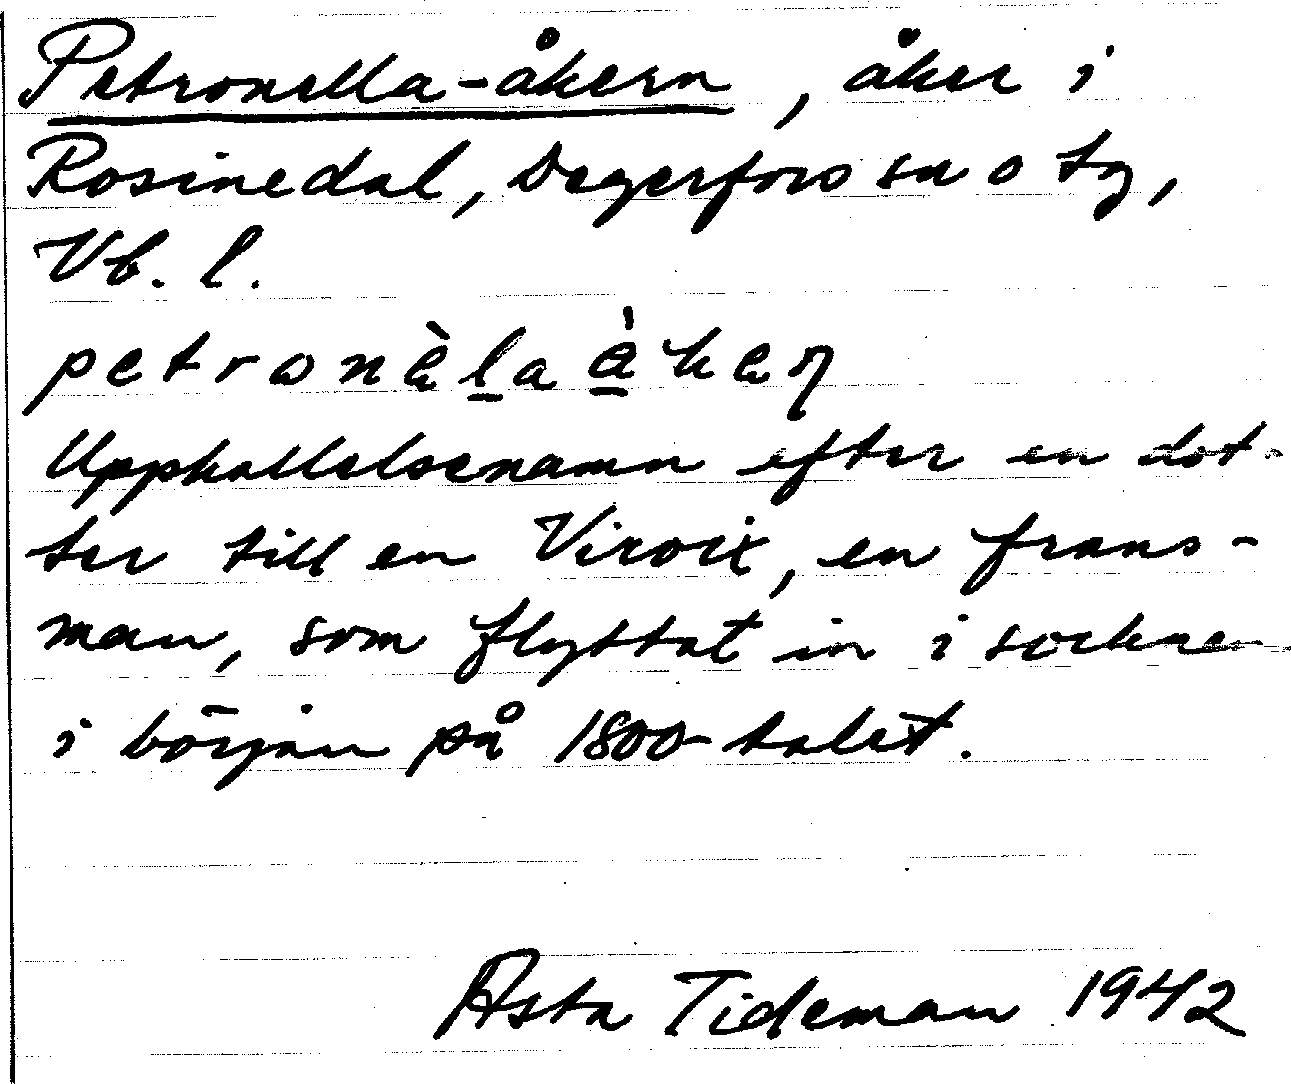 Petronella-åkern, åker i
Rosinedal, Degerfors sn o tg,
Vb. l.
petronèla åkeṇ
Uppkallelsenamn efter en dot-
ter till en Viroix, en frans-
man, som flyttat in i socknen
i början på 1800-talet.
Asta Tideman 1942